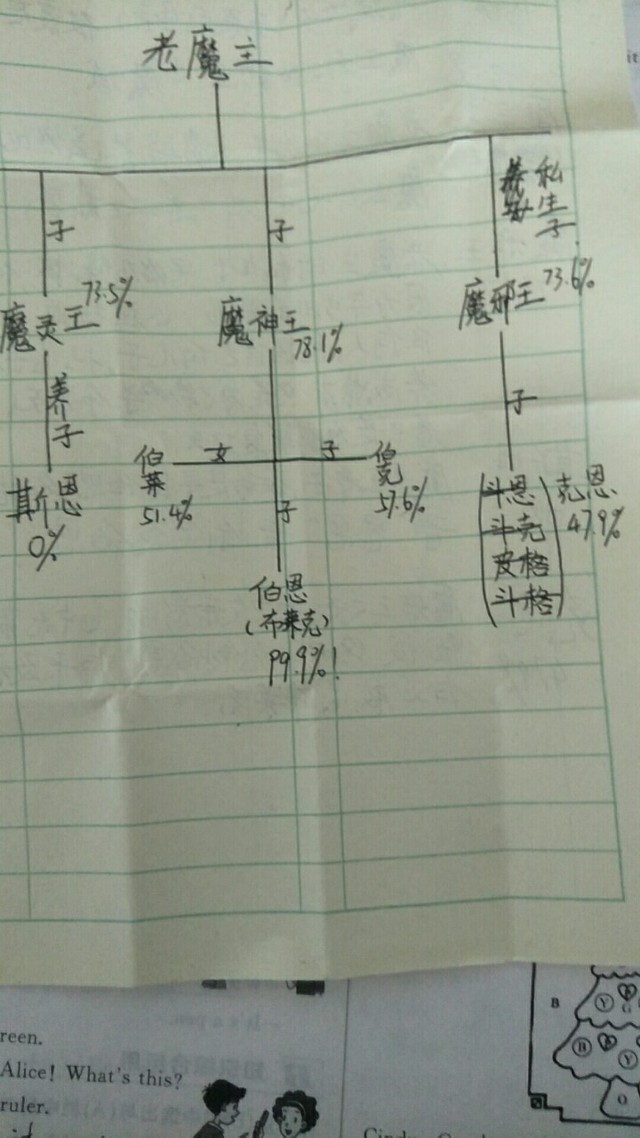 老魔主
子
子
私生子
魔灵王 73.5%
魔神王 78.1%
魔邪王 73.6%
养子
女
子
子
子
斯恩
0%
伯莱
51.4%
伯克
57.6%
伯恩
(布莱克)
99.9%!
斗恩
斗克
皮格
斗格
克恩
47.9%
it
reen.
Alice! What's this?
ruler.
—It's a pen.
B
Y
G
B
Y
O